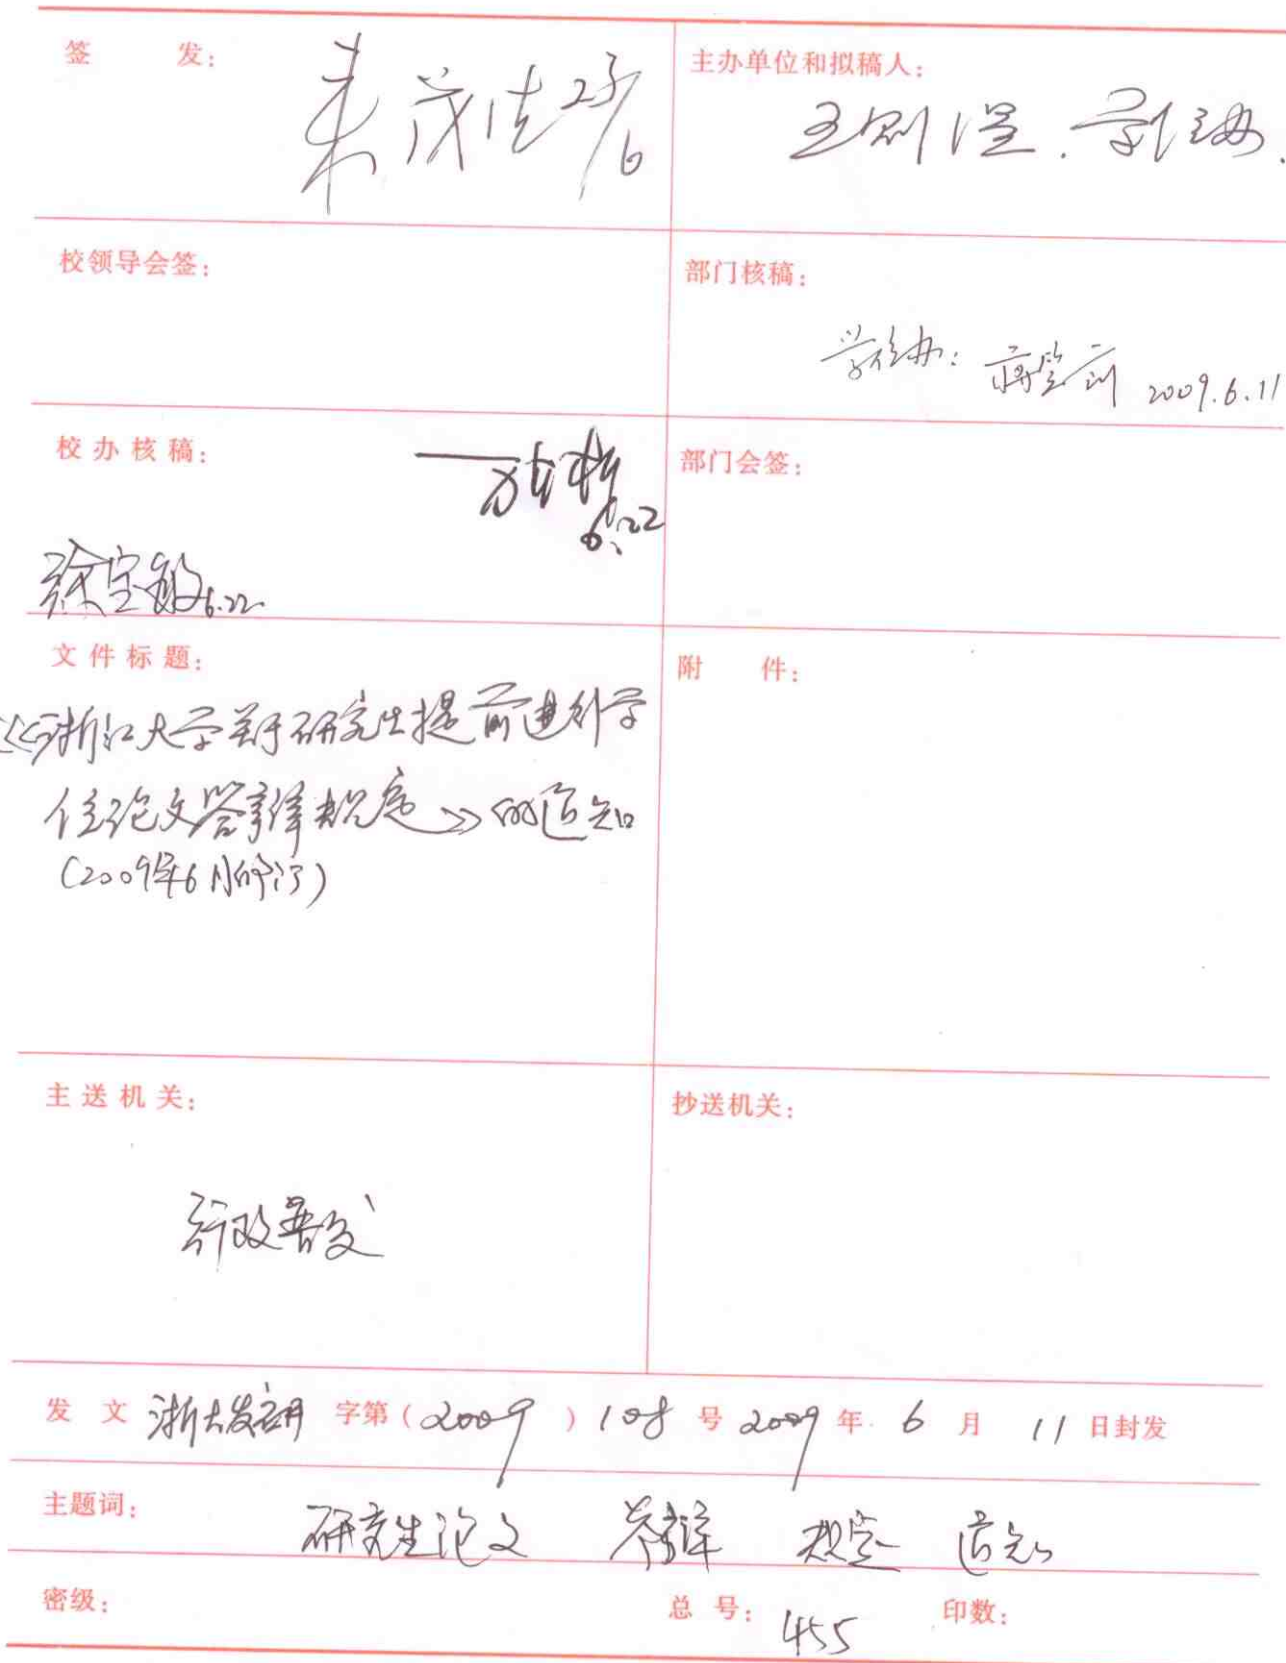 签 发：
来茂德 23/6
主办单位和拟稿人：
学位办.
校领导会签：
部门核稿：
学位办： 2009.6.11
校办核稿：
6.22
徐宝敏 6.22
部门会签：
文件标题：
《浙江大学关于研究生提前进行学
位论文答辩规定》的通知
（2009年6月修订）
附 件：
主送机关：
行政普发
抄送机关：
发 文 浙大发研 字第（2009）108 号 2009 年 6 月 11 日封发
主题词： 研究生论文 答辩 规定 通知
密级： 总 号： 455 印数：